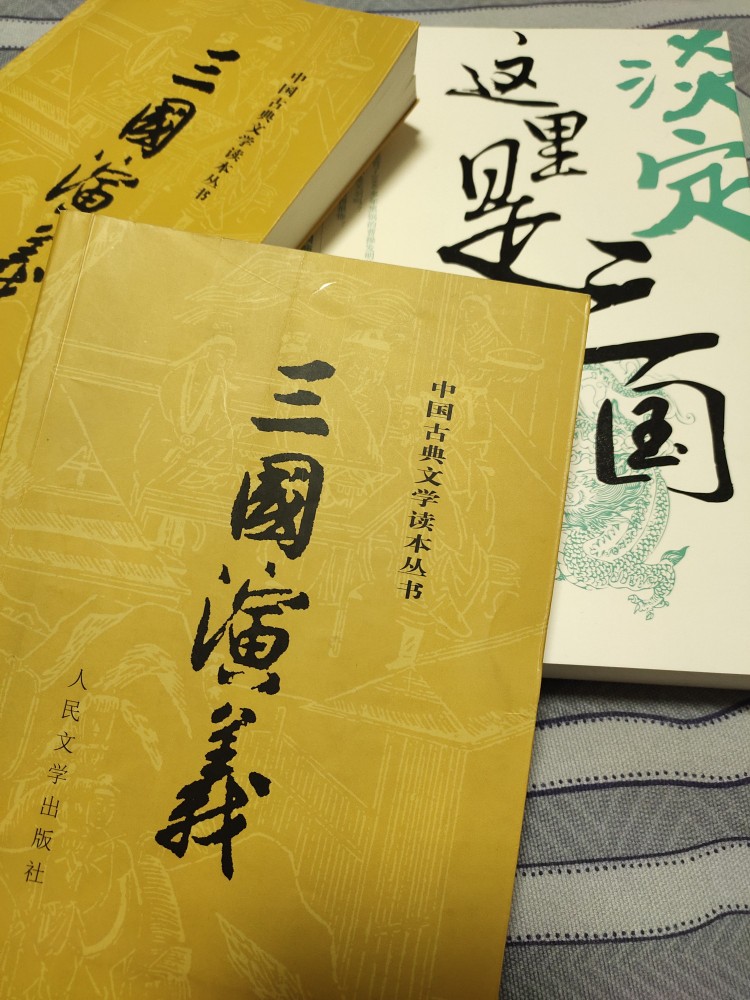 三國演義
中国古典文学读本丛书
淡定
这里是三国
中国古典文学读本丛书
三國演義
人民文学出版社